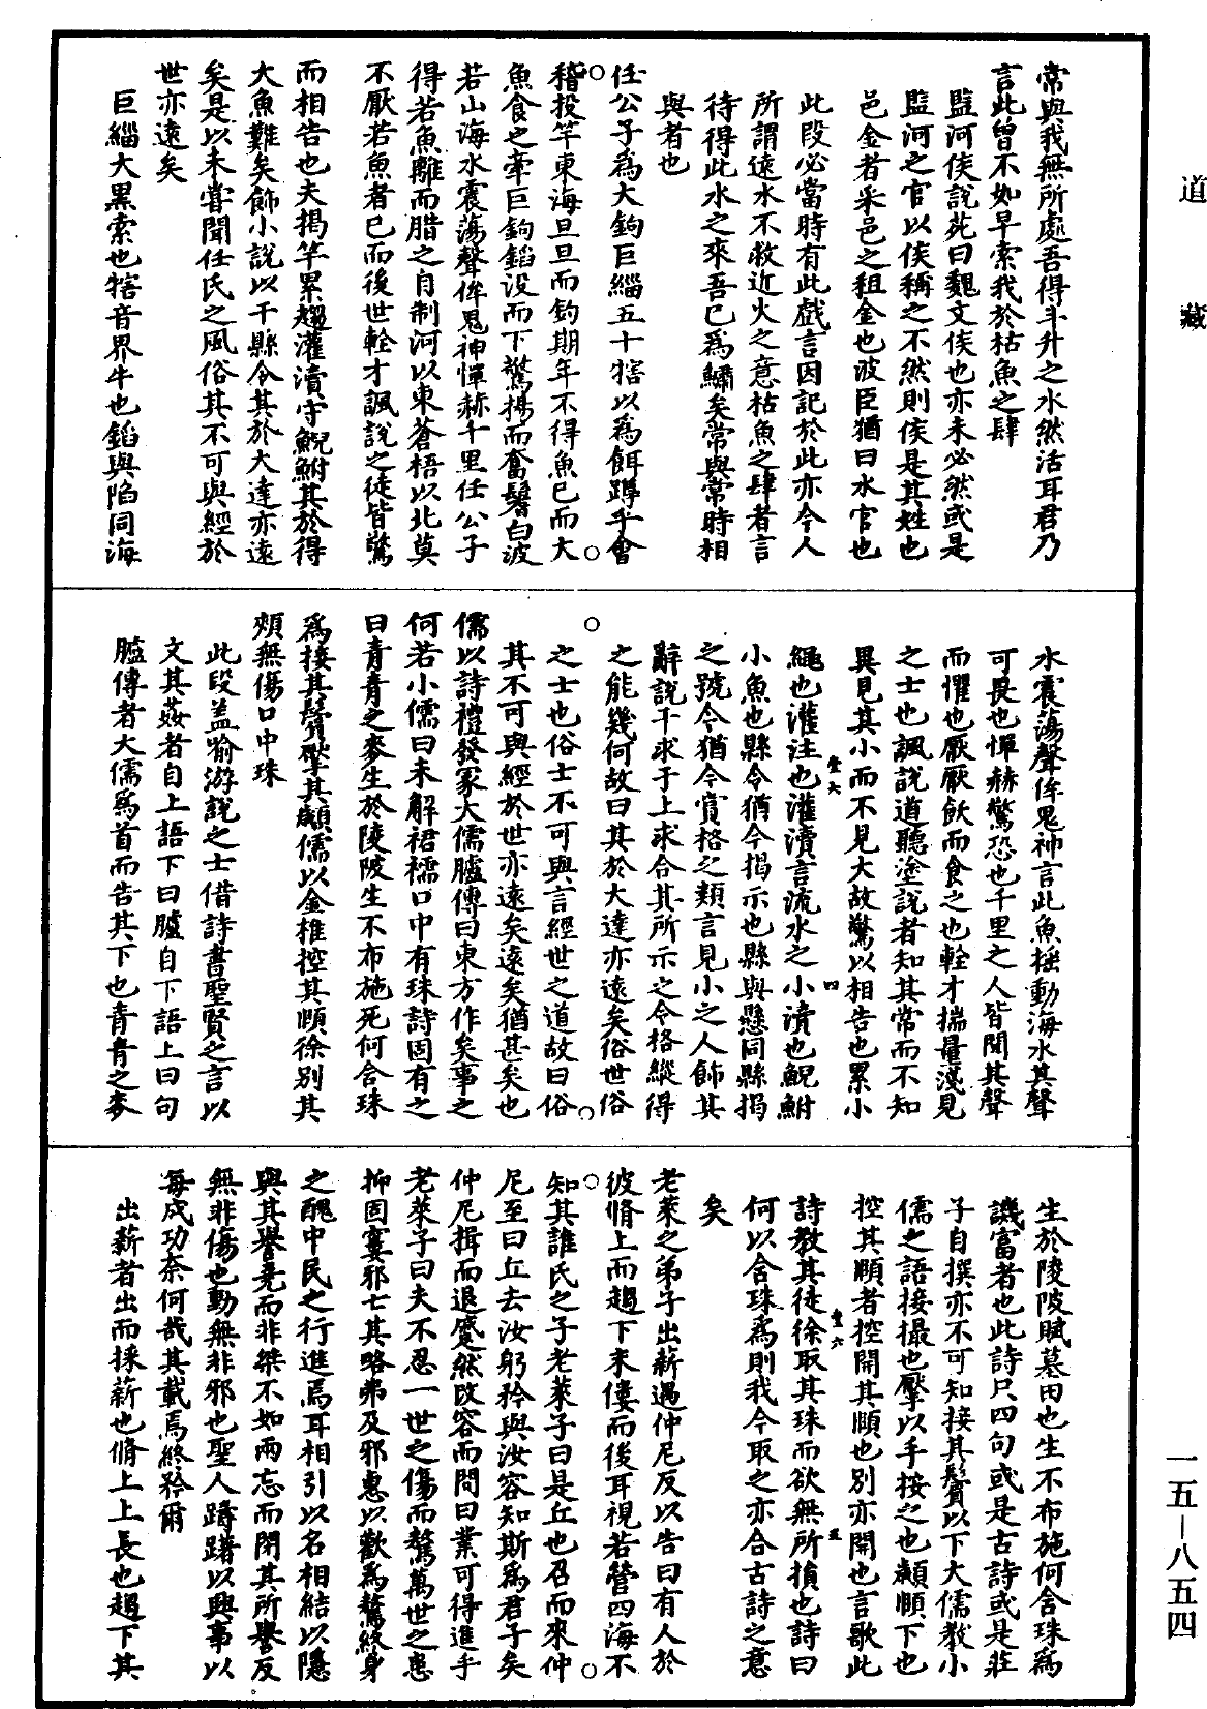 道藏
常與我無所處吾得斗升之水然活耳君乃
言此曾不如早索我於枯魚之肆
監河侯說苑曰魏文侯也亦未必然或是
監河之官以侯稱之不然則侯是其姓也
邑金者采邑之租金也波臣猶曰水官也
此段必當時有此戲言因記於此亦今人
所謂遠水不救近火之意枯魚之肆者言
待得此水之來吾已為鱐矣常與常時相
與者也
任公子為大鉤巨緇五十犗以為餌蹲乎會
稽投竿東海旦旦而釣期年不得魚已而大
魚食之牽巨鉤錎没而下驚揚而奮鬐白波
若山海水震蕩聲侔鬼神憚赫千里任公子
得若魚離而腊之自制河以東蒼梧以北莫
不厭若魚者已而後世輇才諷說之徒皆驚
而相告也夫揭竿累趨灌瀆守鯢鮒其於得
大魚難矣飾小說以干縣令其於大達亦遠
矣是以未嘗聞任氏之風俗其不可與經於
世亦遠矣
巨緇大黑索也犗音界牛也錎與陷同海
水震蕩聲侔鬼神言此魚搖動海水其聲
可畏也憚赫驚恐也千里之人皆聞其聲
而懼也厭厭飫而食之也輇才揣量淺見
之士也諷說道聽塗說者知其常而不知
異見其小而不見大故驚以相告也累小
繩也灌注也灌瀆言流水之小瀆也鯢鮒
小魚也縣令猶今揭示也縣與懸同縣揭
之號令猶今賞格之類言見小之人飾其
辭說干求于上求合其所示之令格縱得
之能幾何故曰其於大達亦遠矣俗世俗
之士也俗士不可與言經世之道故曰俗
其不可與經於世亦遠矣遠矣猶甚矣也
儒以詩禮發冢大儒臚傳曰東方作矣事之
何若小儒曰未解裙襦口中有珠詩固有之
曰青青之麥生於陵陂生不布施死何含珠
為接其鬢擪其顪儒以金椎控其頤徐別其
頰無傷口中珠
此段蓋喻游說之士借詩書聖賢之言以
文其姦者自上語下曰臚自下語上曰句
臚傳者大儒為首而告其下也青青之麥
生於陵陂賦墓田也生不布施何含珠為
譏富者也此詩只四句或是古詩或是莊
子自撰亦不可知接其鬢以下大儒教小
儒之語接撮也擪以手按之也顪頤下也
控其頤者控開其頤也別亦開也言歌此
詩教其徒徐取其珠而欲無所損也詩曰
何以含珠為則我今取之亦合古詩之意
矣
老萊之弟子出薪遇仲尼反以告曰有人於
彼脩上而趨下末僂而後耳視若營四海不
知其誰氏之子老萊子曰是丘也召而來仲
尼至曰丘去汝躬矜與汝容知斯為君子矣
仲尼揖而退蹙然改容而問曰業可得進乎
老萊子曰夫不忍一世之傷而驁萬世之患
抑固窶邪亡其略弗及邪惠以歡為驁終身
之醜中民之行進焉耳相引以名相結以隱
與其譽堯而非桀不如兩忘而閉其所譽反
無非傷也動無非邪也聖人躊躇以興事以
每成功柰何哉其載焉終矜爾
出薪者出而採薪也脩上上長也趨下其
一五—八五四